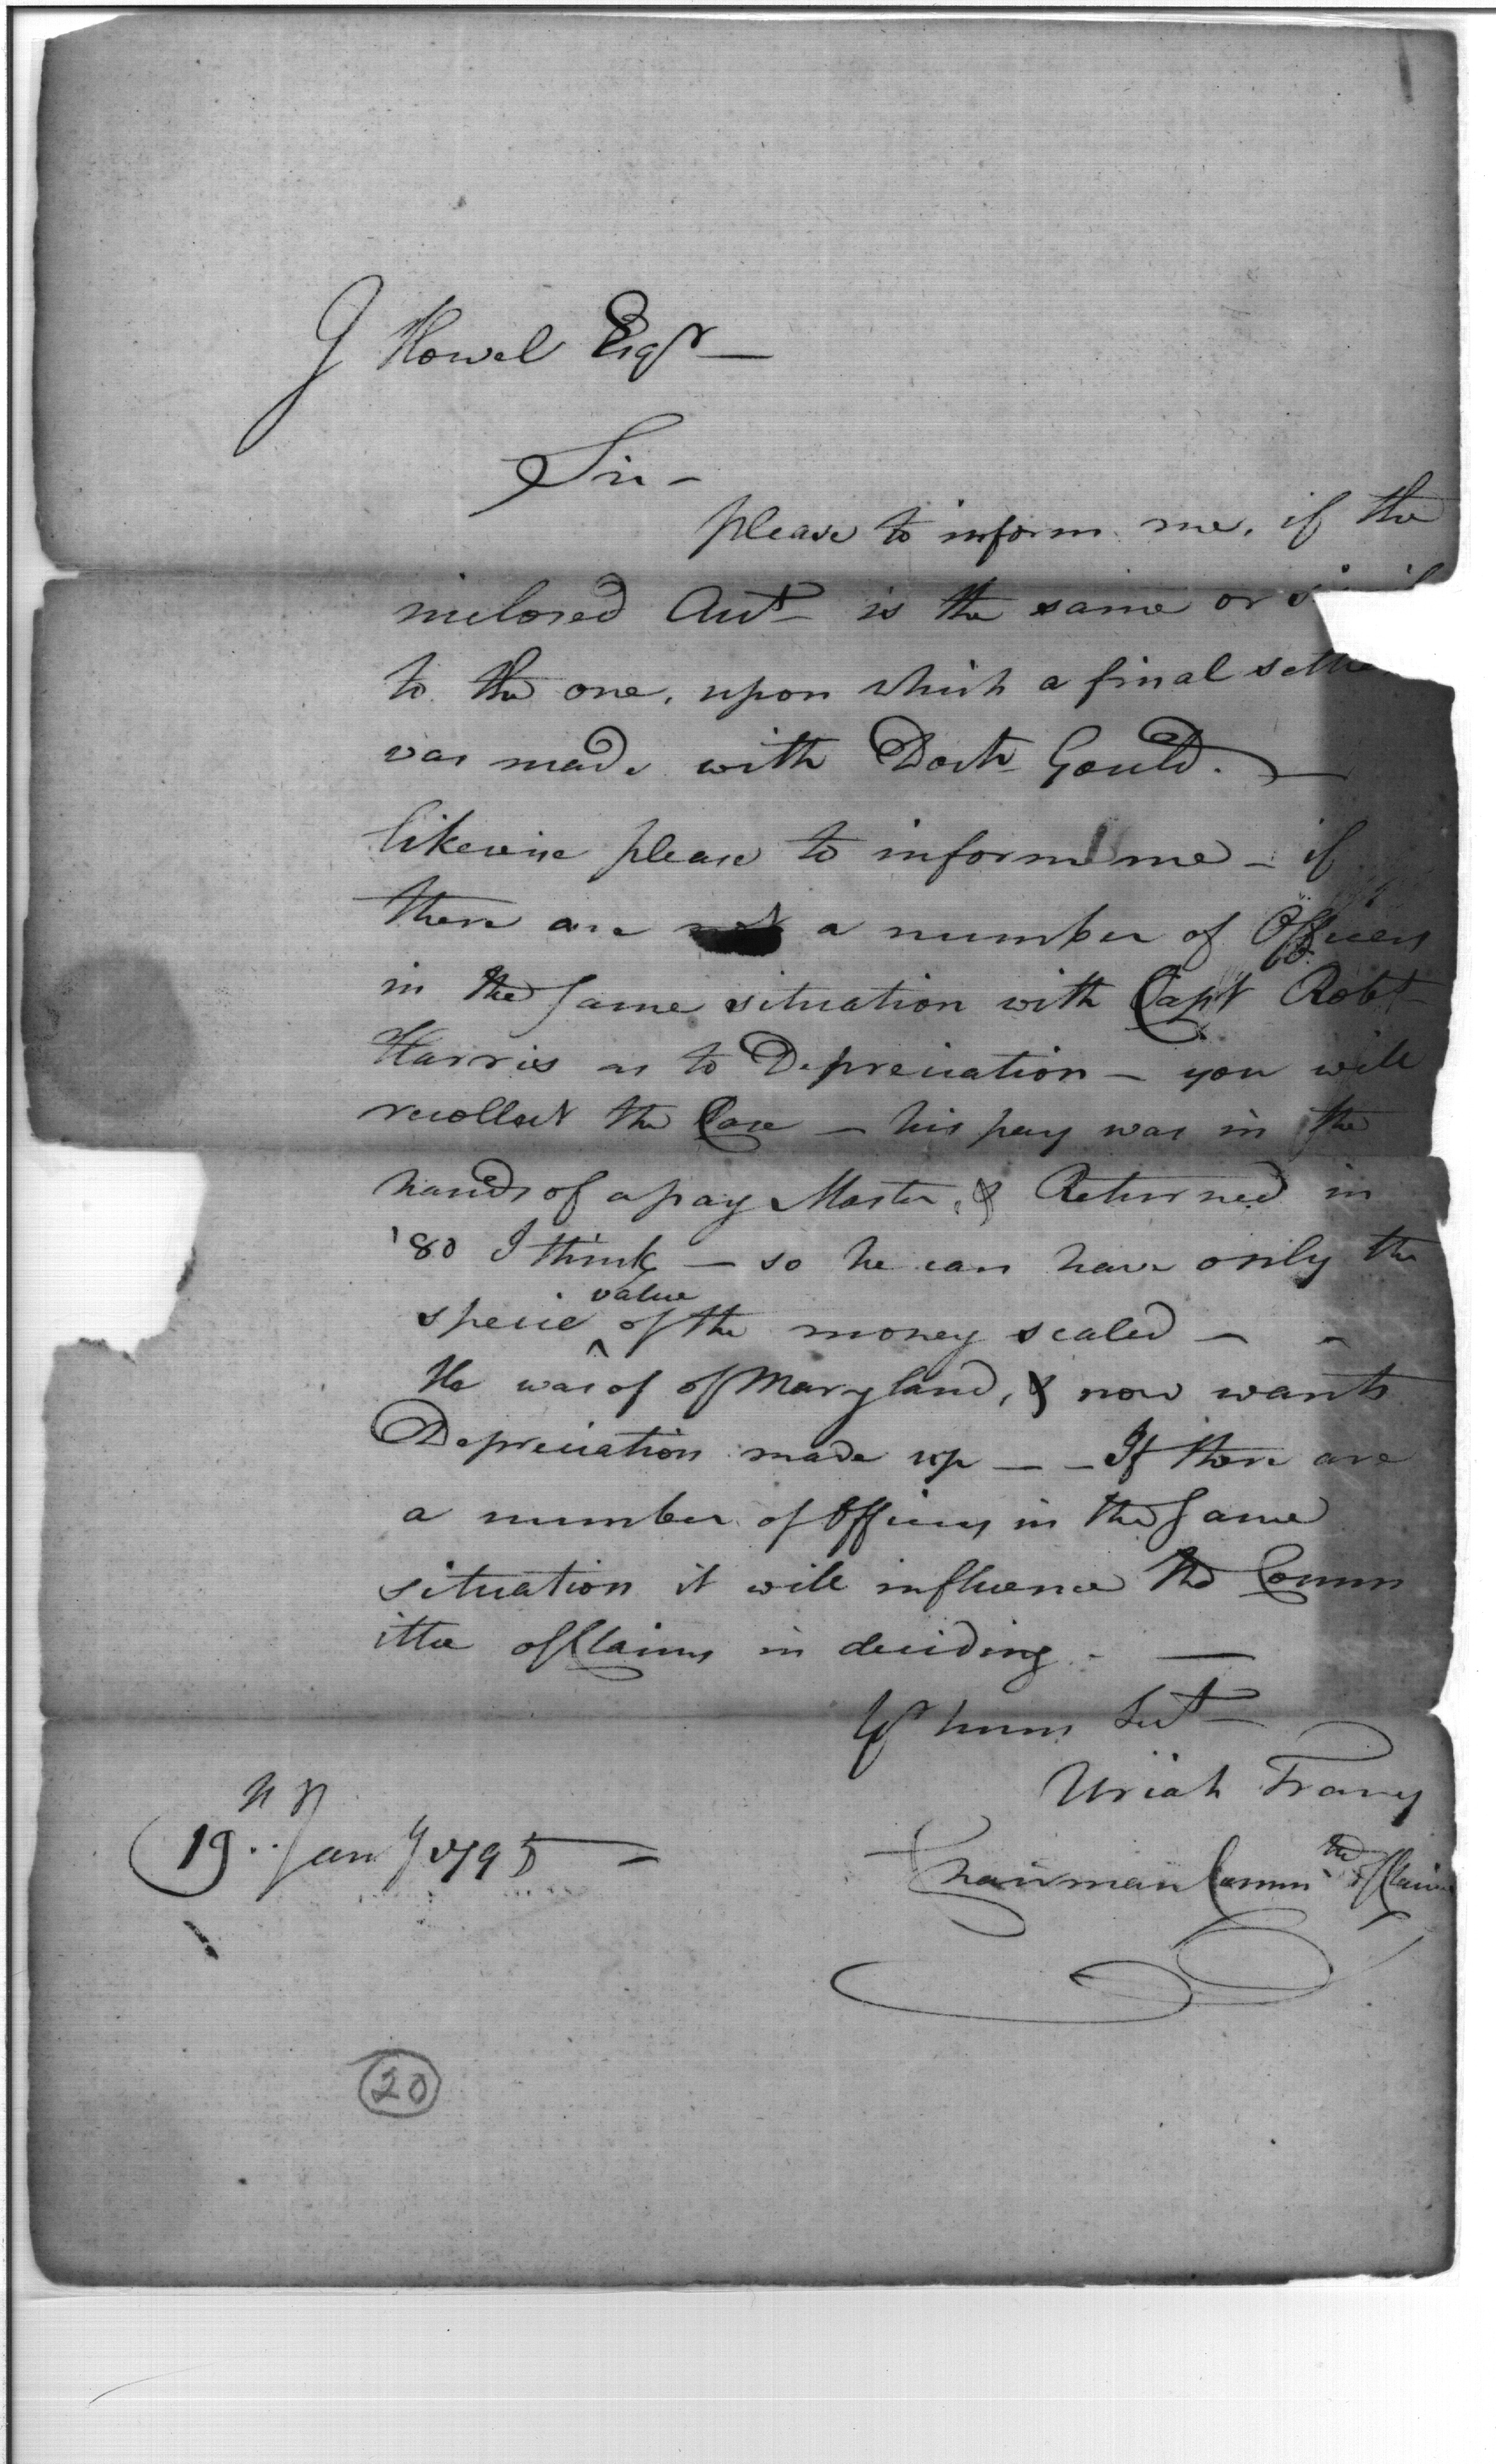 J Howel Esqr —
Sir –
please to inform me, if the
inclosed Acct is the same or
to the one, upon which a final settle
was made with Doctr Gould. —
likewise please to inform me – if
there are not a number of Officers
in the same situation with Capt Robt
Harris as to Depreciation – you will
recollect the Case – his pay was in the
hands of a pay Master, & Returned in
'80 I think – so he can have only the
value
specie ^ of the money scaled – –
He was of of Maryland, & now wants
Depreciation made up – – If there are
a number of Officers in the same
situation it will influence the Comm
ittee of Claims in deciding. —
Yr hum Sert
Uriah Tracy
19. Jany 1795 –
Chairman Commttee of Claims
20